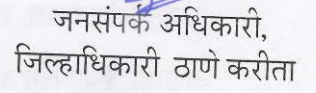 जनसंपर्क अधिकारी,
जिल्हाधिकारी ठाणे करीता